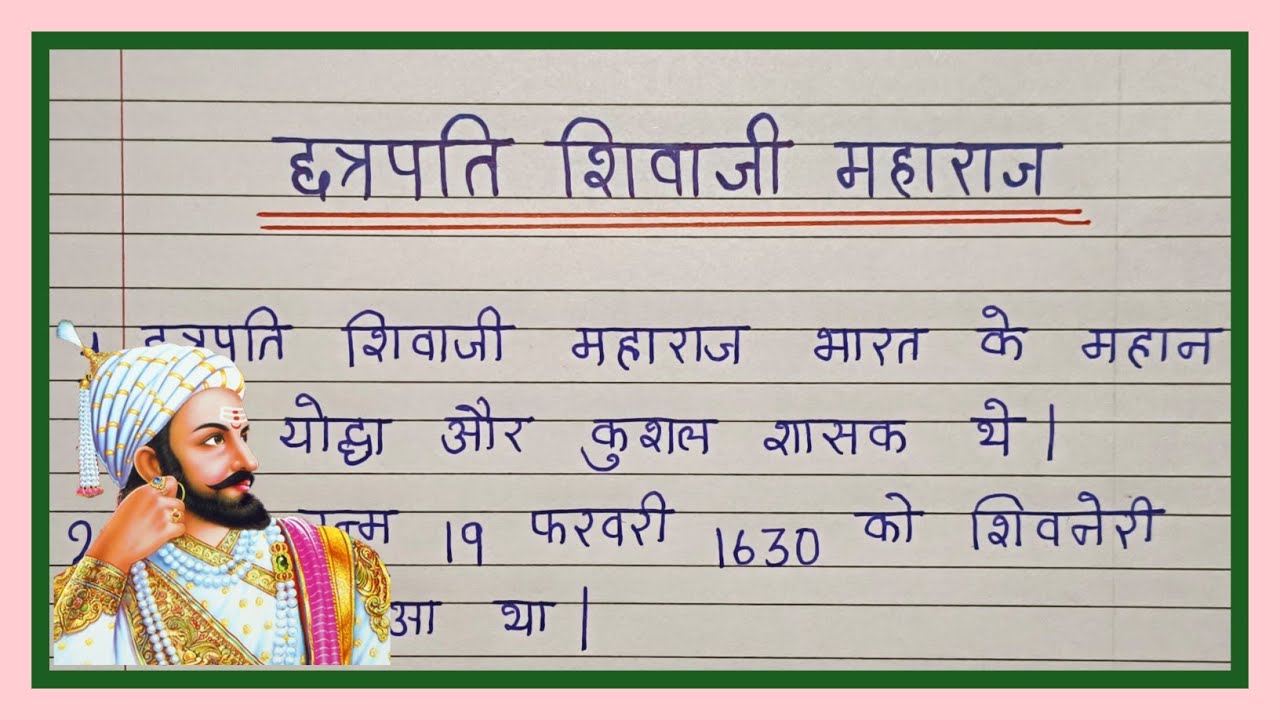 छत्रपति शिवाजी महाराज
छत्रपति शिवाजी महाराज भारत के महान
योद्धा और कुशल शासक थे |
19 फरवरी 1630 को शिवनेरी
था |